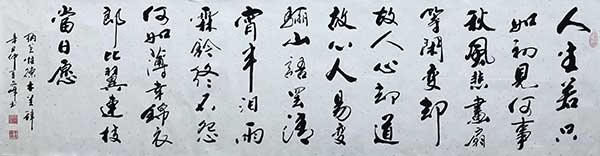 人生若只
如初見何事
秋風悲畫扇
等閑變却
故人心却道
故心人易變
驪山語罷清
宵半泪雨
霖鈴終不怨
何如薄幸錦衣
郎比翼連枝
當日愿
納兰性德木蘭詞